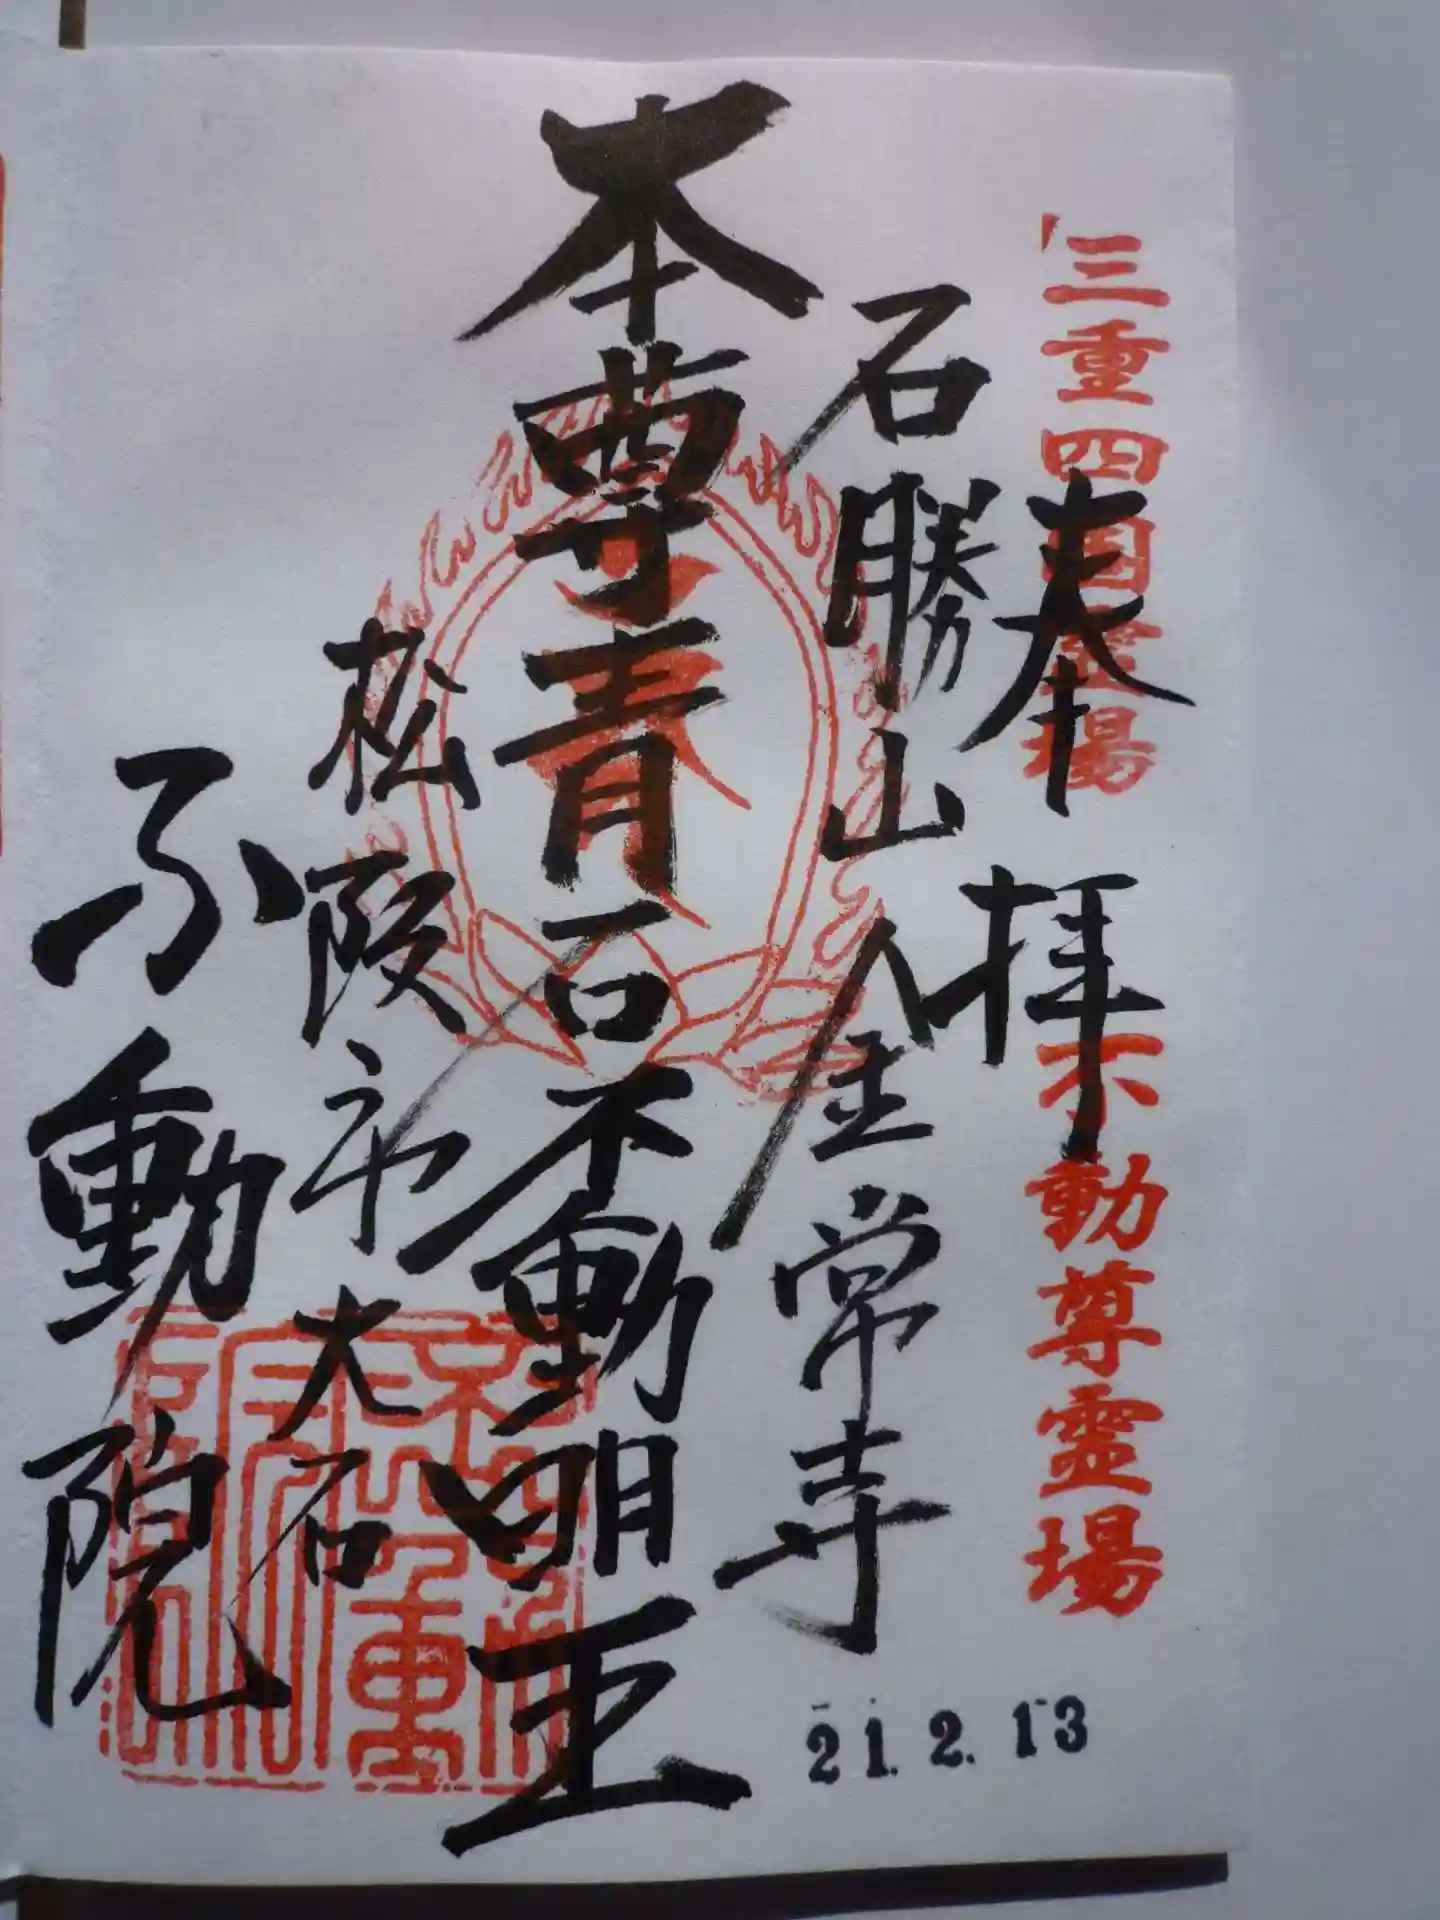 三重四国霊場
不動尊霊場
奉拝
石勝山金常寺
本尊青石不動明王
松阪市大石
不動院
21.2.13